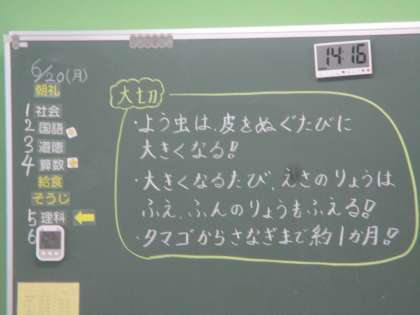 6/20(月)
朝礼
1 社会
2 国語
3 道徳
4 算数
給食
そうじ
5 理科
6
14:16
大切
・よう虫は、皮をぬぐたびに
大きくなる!!
・大きくなるたび、えさのりょうは
ふえ、ふんのりょうもふえる!!
・タマゴからさなぎまで約1か月!!